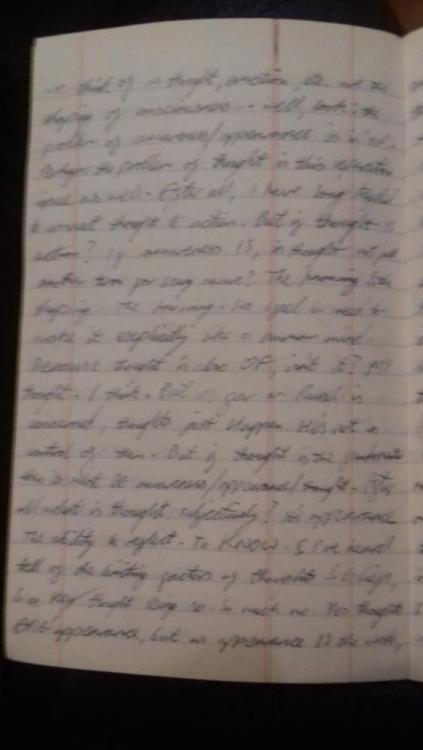 think of a thought, emotion, etc. not the
shaping of consciousness - well, both: the
problem of awareness/appearance is in of.
Perhaps the problem of thought is this
issue as well - After all, I have long
to connect thought to action. But if thought is
action? If awareness IS, is thought not just
another term for being aware? The knowing is the
shaping. The knowing - I feel a need to
make it explicitly like a human mind.
Because thought is also OF, isn't it? MY
thought. I think. But as far as is
concerned, thoughts just happen. He's not in
control of them. But if thought is the
then it must be awareness/appearance/thought. After
all what is thought subjectively? It's appearance.
The ability to reflect. To KNOW. & I've heard
tell of the limiting factors of thoughts &
thought being so. So much me. Yes thoughts
ARE appearance, but as appearance IS the world,